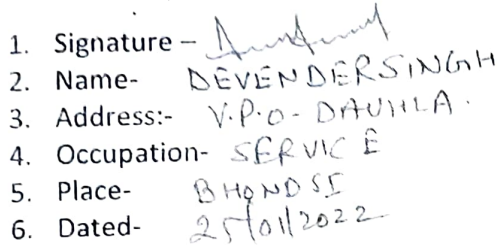 1. Signature –
2. Name- DEVENDERSINGH
3. Address:- V.P.O- DAUHLA.
4. Occupation- SERVICE
5. Place- BHONDSI
6. Dated- 25/01/2022